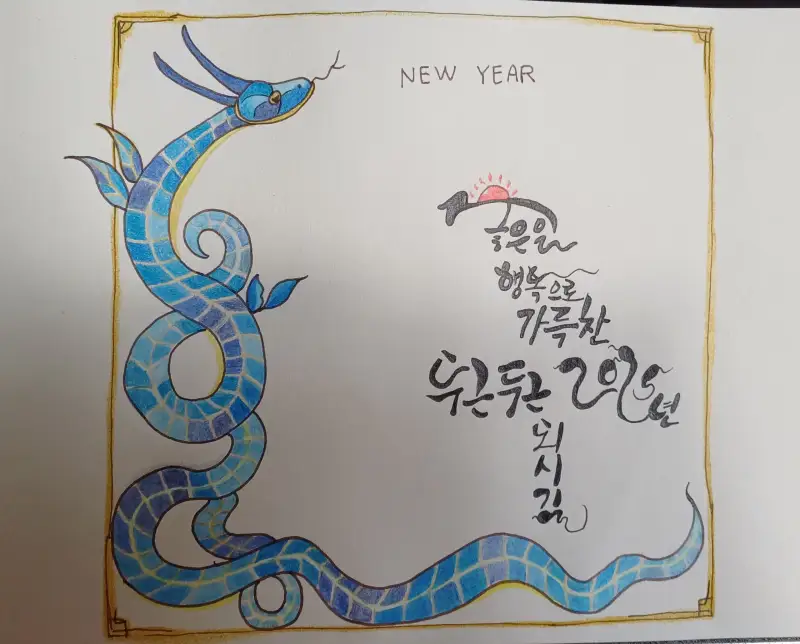 NEW YEAR
좋은일
행복으로
가득찬
두근두근 2025년
되시길